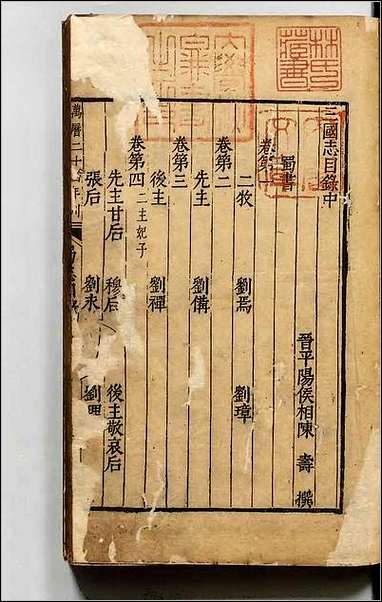 三國志目錄中
晉平陽侯相陳 壽 撰
蜀書
卷第一
二牧 劉焉 劉璋
卷第二
先主 劉備
卷第三
後主 劉禪
卷第四 二主妃子
先主甘后 穆后 後主敬哀后
張后 劉永 劉理
萬曆二十四年刊
林氏藏書